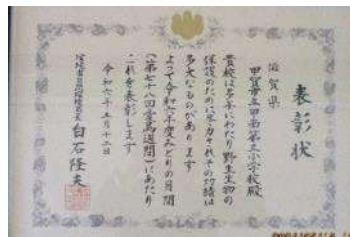 表彰状
滋賀県
甲賀市立甲南第三小学校殿
貴校は多年にわたり野生生物の
保護のために尽力されその功績は
多大なものがあります
よって令和六年度みどりの月間
(第七十八回愛鳥週間)にあたり
これを表彰します
令和六年五月十二日
環境省自然環境局長 白石隆夫